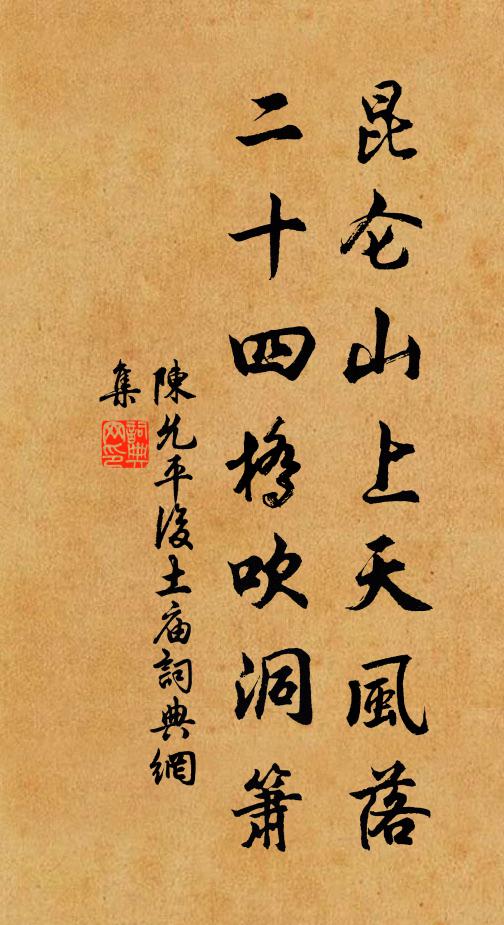 昆仑山上天風落
二十四橋吹洞簫
陳允平後土庙詞典網
集
詞典
网印